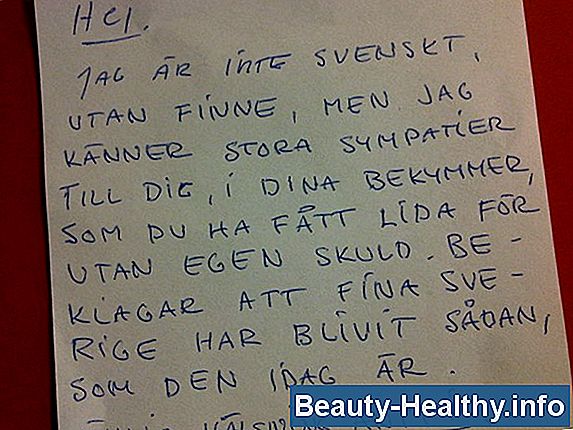 HEJ.
JAG ÄR INTE SVENSKT,
UTAN FINNE, MEN JAG
KÄNNER STORA SYMPATIER
TILL DIG, I DINA BEKYMMER,
SOM DU HA FÅTT LIDA FÖR
UTAN EGEN SKULD. BE-
KLAGAR ATT FINA SVE-
RIGE HAR BLIVIT SÅDAN,
SOM DEN IDAG ÄR.
Beauty-Healthy.info